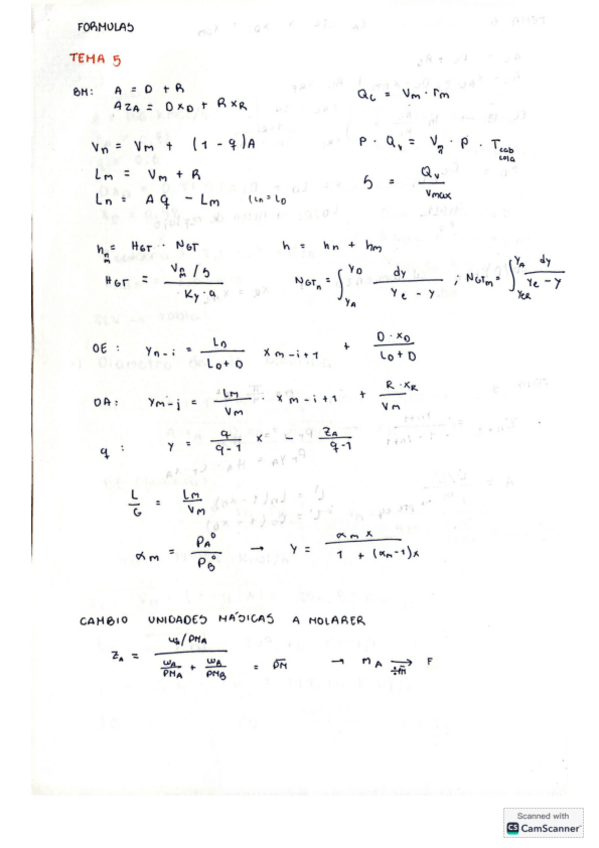 FORMULAS
TEMA 5
BM: A = D + R
A z_A = D x_D + R x_R
Q_c = V_m · r_m
V_n = V_m + (1 - q) A
P · Q_v = V_n · R · T_cab
cola
L_m = V_m + R
S = Q_v / V_max
L_n = A q - L_m (L_n = L_0
h_n = H_GT · N_GT
m
h = h_n + h_m
H_GT = (V_n / S) / (K_y · a)
m
N_GTn = ∫_{y_A}^{y_D} dy / (y_e - y) ; N_GTm = ∫_{y_CR}^{y_A} dy / (y_e - y)
OE : y_n-i = L_n / (L_0 + D) x_m-i+1 + D · x_D / (L_0 + D)
OA : y_m-j = L_m / V_m · x_m-i+1 + R · x_R / V_m
q : y = q / (q-1) x - z_A / (q-1)
L / G = L_m / V_m
α_m = P_A° / P_B° → y = α_m x / (1 + (α_m - 1) x)
CAMBIO UNIDADES MÁSICAS A MOLARER
z_A = (w_A / PM_A) / (w_A / PM_A + w_A / PM_B) = PM → m_A → F
÷ PM
Scanned with
CS CamScanner